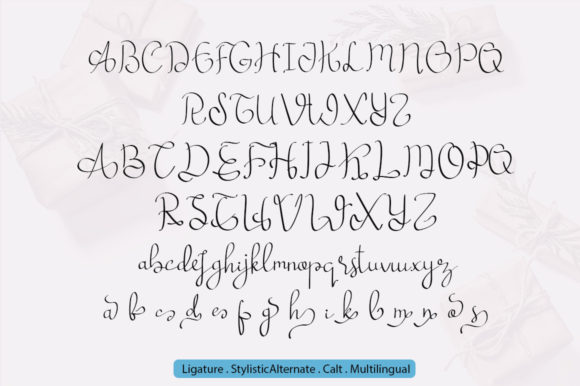 ABCDEFGHIJKLMNOPQ
RSTUVWXYZ
ABCDEFHIJKLMOPQ
RSTUVWXYZ
abcdefghijklmnopqrstuvwxyz
a b c d e f g h i k l m n
Ligature . StylisticAlternate . Calt . Multilingual